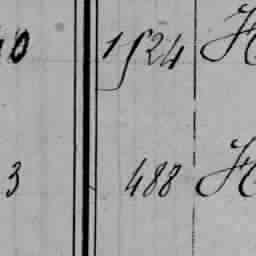 10 1524 H
3 488 H